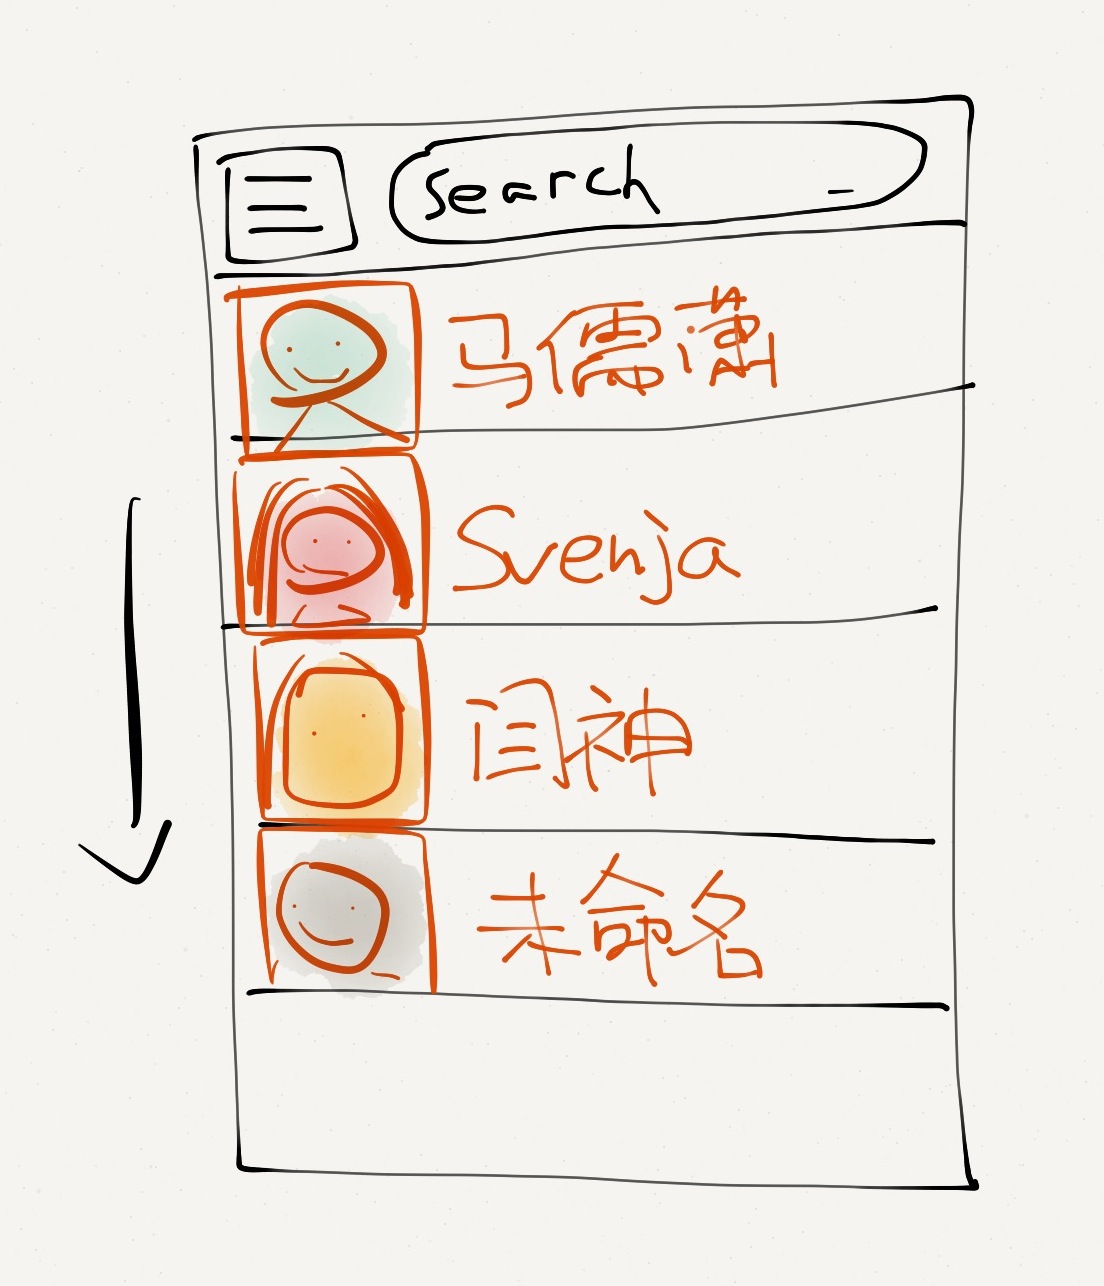 search
马儒潇
Svenja
闫神
未命名